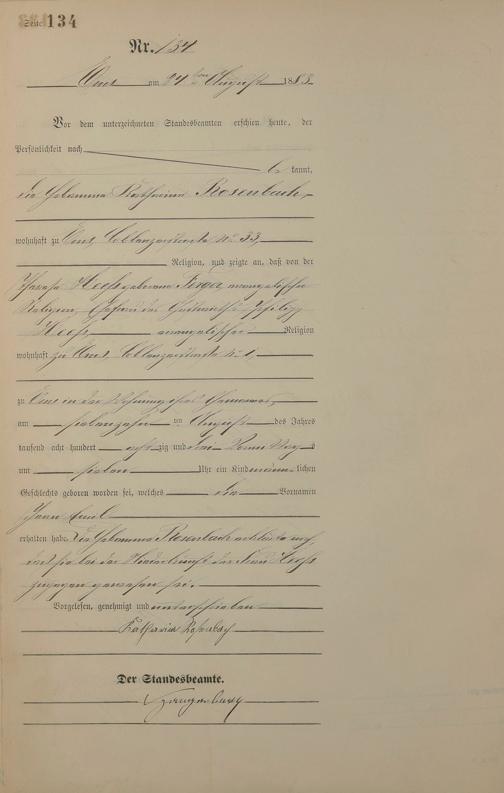 Seite 134
Nr. 134
Ems am 24 ten August 1883
Vor dem unterzeichneten Standesbeamten erschien heute, der
Persönlichkeit nach
be kannt,
die Hebamme Katharina Rosenbach,
wohnhaft zu Ems, Coblenzerstraße No 33,
Religion, und zeigte an, daß von der
Hochs geborenen evangelischer
Religion, Ehefrau des Gastwirths Philipp
Hochs, evangelischer Religion
wohnhaft zu Ems, Coblenzerstraße No 1,
zu Ems in der Wohnung ihres Ehemannes,
am siebenzehn ten August des Jahres
tausend acht hundert acht zig und drei Vormittags
um sieben Uhr ein Kind männ lichen
Geschlechts geboren worden sei, welches die Vornamen
Emil
erhalten habe. Die Hebamme Rosenbach erklärte noch,
daß sie bei der Niederkunft der Frau Hochs
zugegen gewesen sei.
Vorgelesen, genehmigt und unterschrieben
Katharina Rosenbach
Der Standesbeamte.